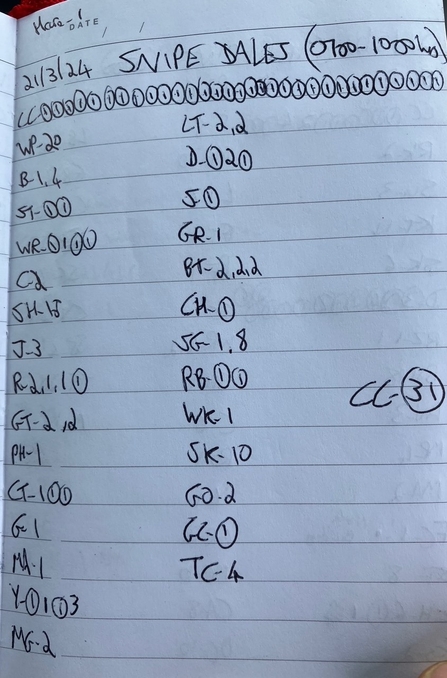 Hare-1
DATE / /
21/3/24 SNIPE DALES (0700-1000hrs)
CC①①①①①①①①①①①①①①①①①①①①①①①①①①①①①①①
WP-20
B-1,4
ST-①①
WR-①1①①
C2
SH-15
J-3
R-2,1,1①
GT-2,2
PH-1
CT-1①①
G-1
MA-1
Y-①1①3
MG-2
LT-2,2
D-①2①
S①
GR-1
BT-2,2,2
CH-①
SG-1,8
RB-①①
WK-1
SK-10
GO-2
GC-①
TC-4
CC-㉛